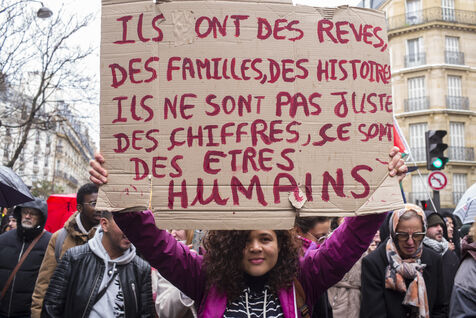 ILS ONT DES REVES,
DES FAMILLES, DES HISTOIRE
ILS NE SONT PAS JUSTE
DES CHIFFRES, CE SONT
DES ETRES
HUMAINS